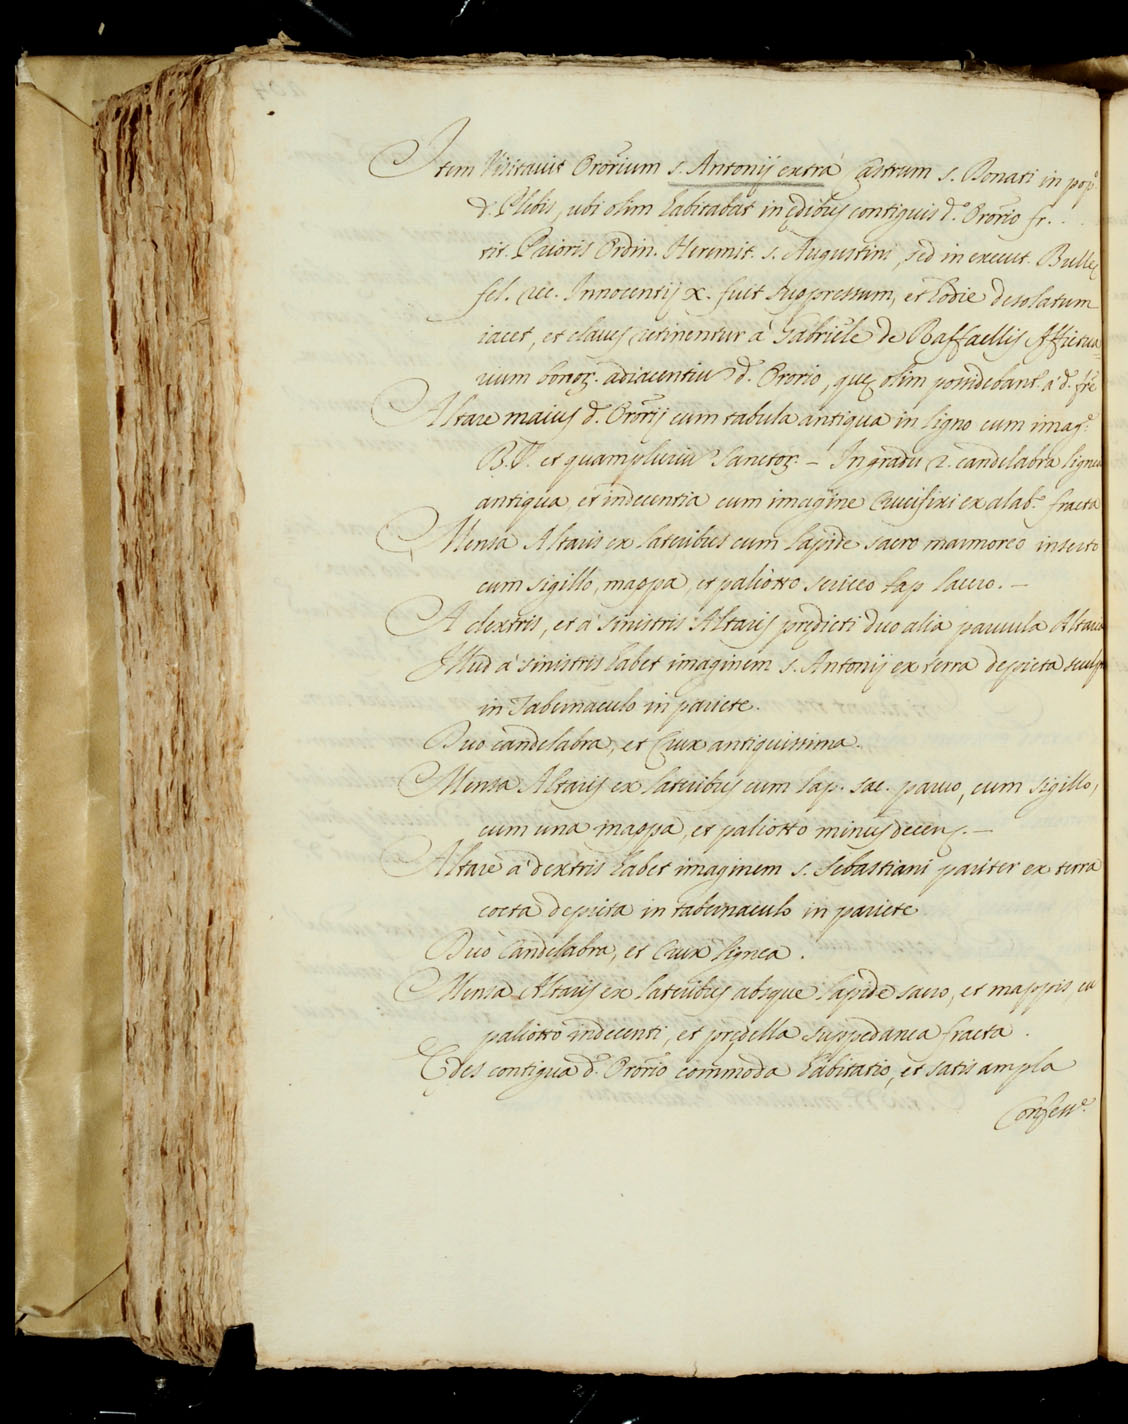 Item Visitavit Oror̃ium s. Antonij extra Castrum s. Donati in pop.º
d. Plebis, ubi olim habitabat in ędibus contiguis d.º Oror̃io fr. . .
tit. Prioris Ordin. Heremit. s. Augustini, sed in execut. Bullę
fel. rec. Innocentij X. fuit suppressum, et hodie desolatum
iacet, et claves retinentur à Gabriele de Raffaellis Affictua=
rium bonoꝝ. adiacentiu d.º Ororio, quę olim possidebant. à d. fr̃e
Altare maius d. Oror̃ij cum tabula antiqua in ligno cum imag.e
B.V. et quampluriu Sanctoꝝ. – In gradu 2. candelabra lignea
antiqua, et indecentia cum imagine Crucifixi ex alab.º fracta
Mensa Altaris ex lateribus cum lapide sacro marmoreo inserto
cum sigillo, mappa, et paliotto sericeo lacero. –
A dextris, et à sinistris Altaris prędicti duo alia parvula Altaria
Illud à sinistris habet imaginem s. Antonij ex terra depicta sculp
in Tabernaculo in pariete.
Duo candelabra, et Crux antiquissima.
Mensa Altaris ex lateribus cum lap. sac. parvo, cum sigillo,
cum una mappa, et paliotto minus decens. –
Altare à dextris habet imaginem s. Sebastiani pariter ex terra
cocta depicta in tabernaculo in pariete
Duo Candelabra, et Crux lignea.
Mensa Altaris ex lateribus absque lapide sacro, et mappis, cu
paliotto indecenti, et prędella suppedanea fracta.
Ędes contigua d.º Oror̃io commoda habitatio, et satis ampla